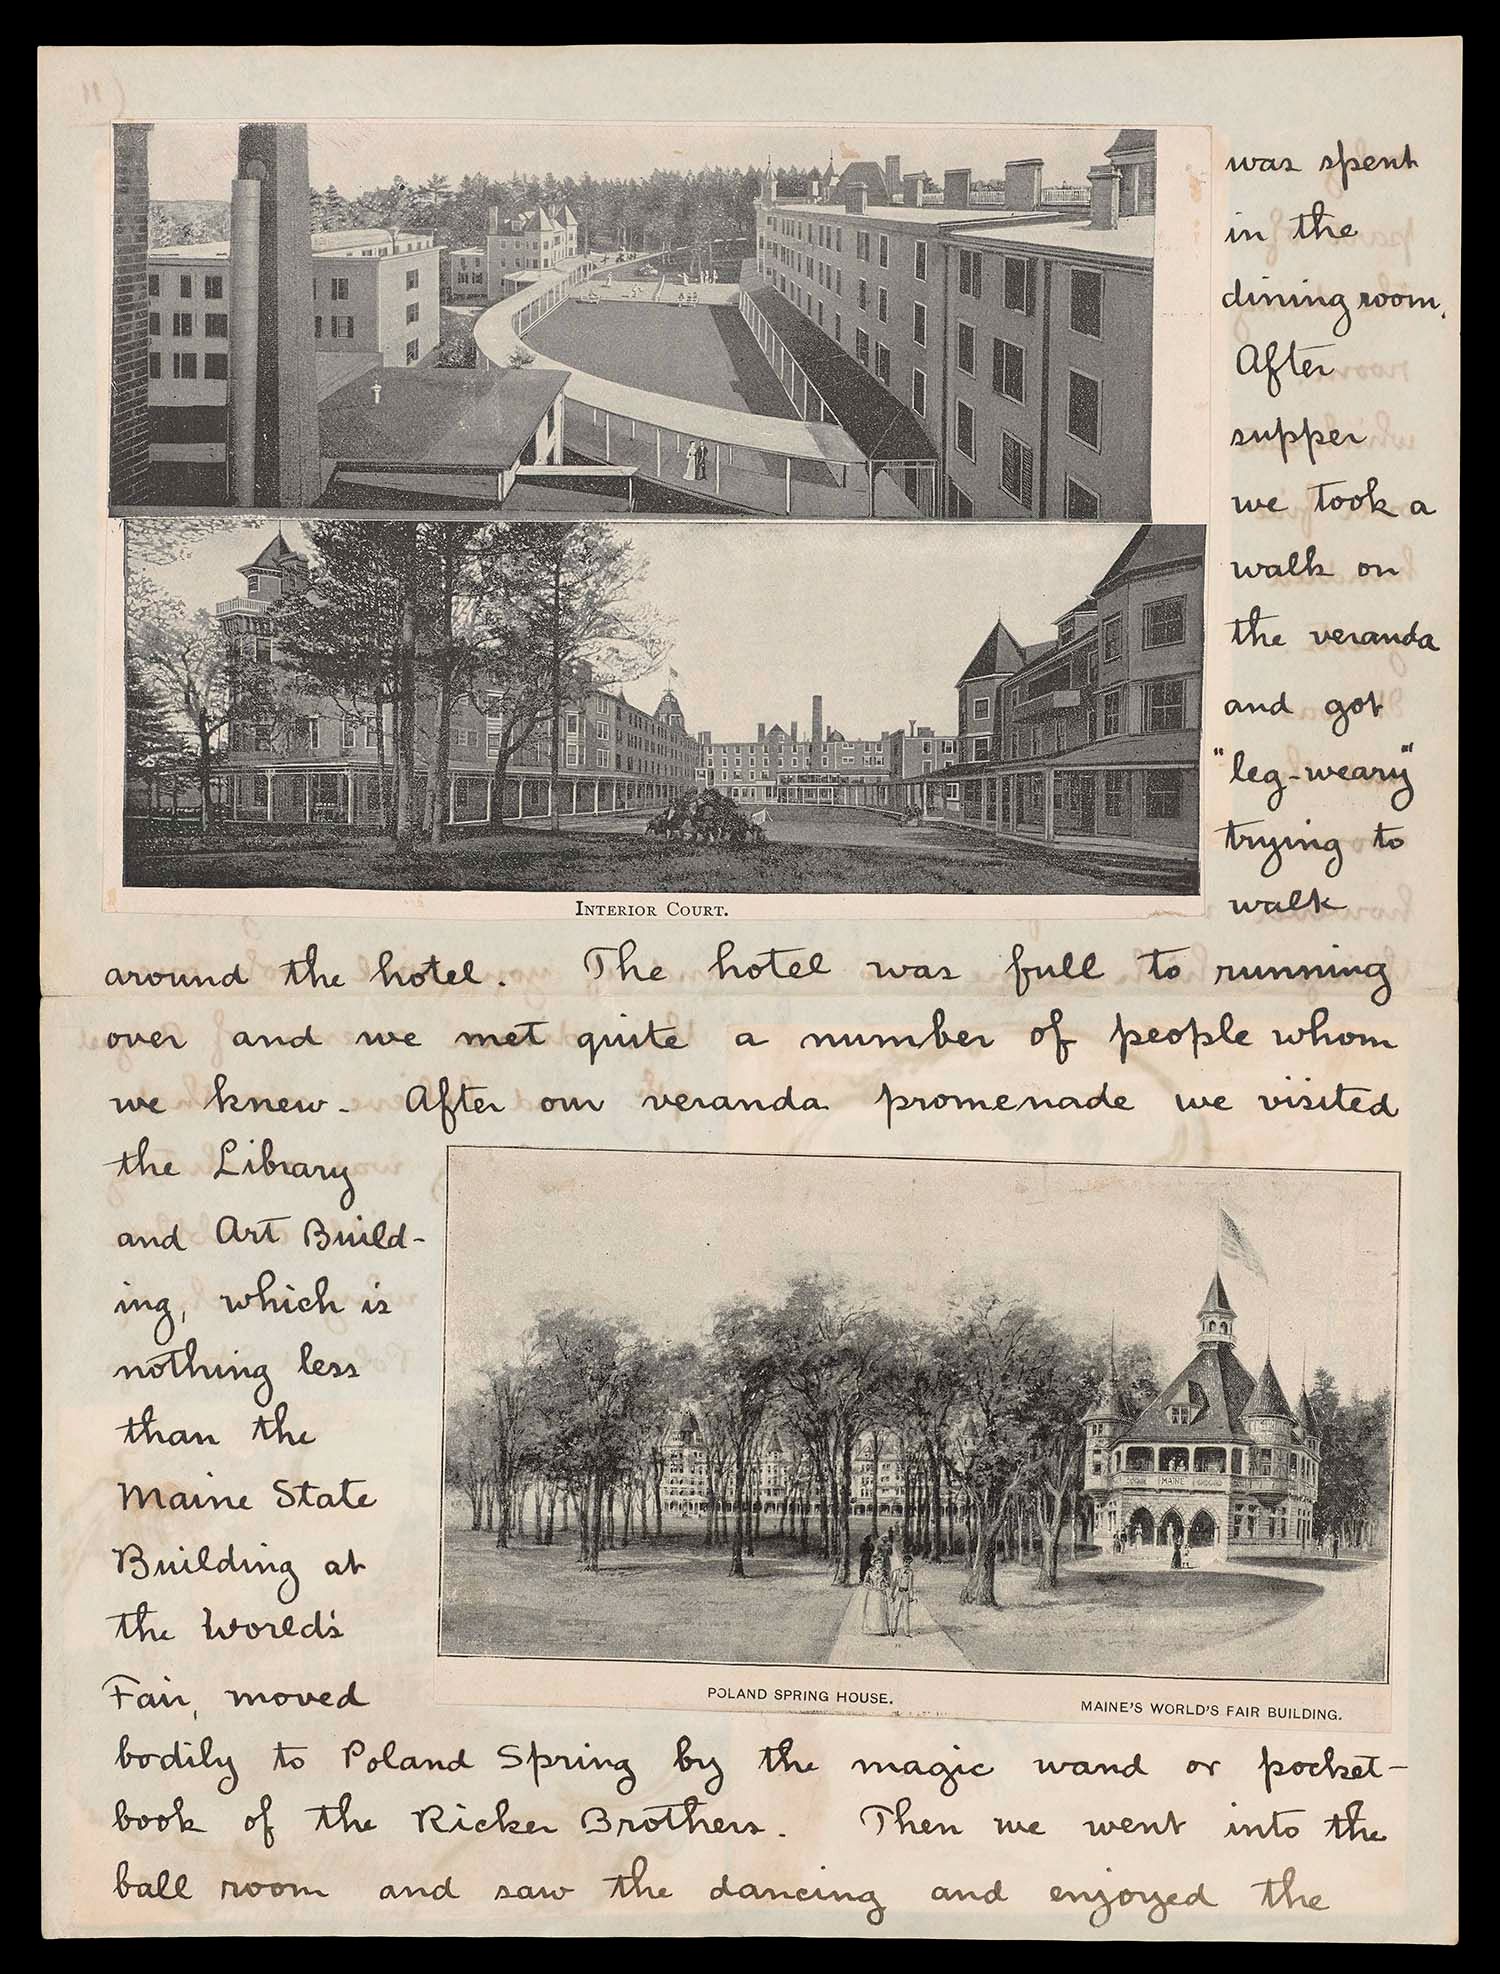 was spent
in the
dining room.
After
supper
we took a
walk on
the veranda
and got
"leg-weary"
trying to
walk
INTERIOR COURT.
around the hotel. The hotel was full to running
over and we met quite a number of people whom
we knew. After our veranda promenade we visited
the Library
and Art Build-
ing, which is
nothing less
than the
Maine State
Building at
the World's
Fair, moved
MAINE
POLAND SPRING HOUSE.
MAINE'S WORLD'S FAIR BUILDING.
bodily to Poland Spring by the magic wand or pocket-
book of the Ricker Brothers. Then we went into the
ball room and saw the dancing and enjoyed the